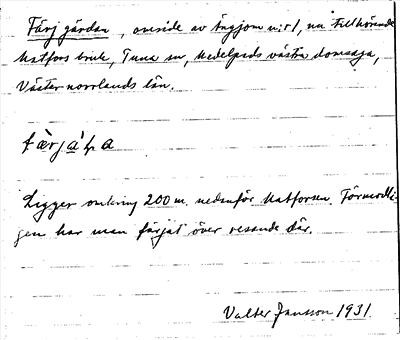 Färjgården, område av Ängjom n:r 1, nu tillhörande
Matfors bruk, Tuna sn, Medelpads västra domsaga,
Västernorrlands län.
Ligger omkring 200 m. nedanför Matforsen. Förmodli-
gen har man färjat över resande där.
Valter Jansson 1931.